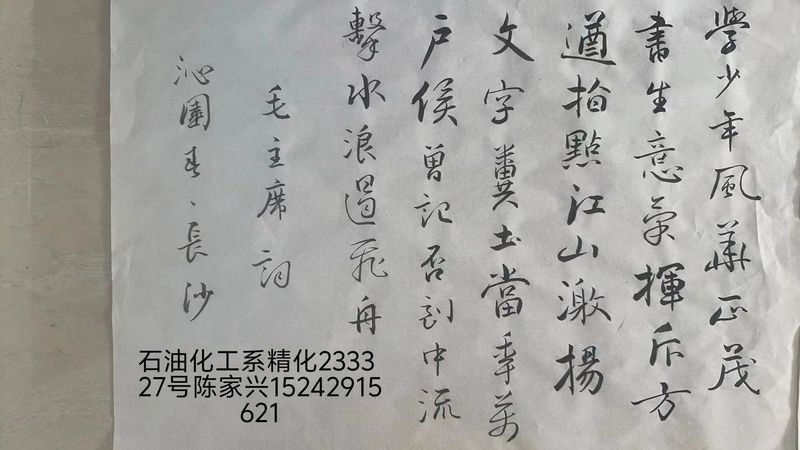 學少年風華正茂
書生意氣揮斥方
遒指點江山激揚
文字糞土當年萬
户侯曾記否到中流
擊水浪遏飛舟
毛主席詞
沁園春、長沙
石油化工系精化2333
27号陈家兴15242915
621